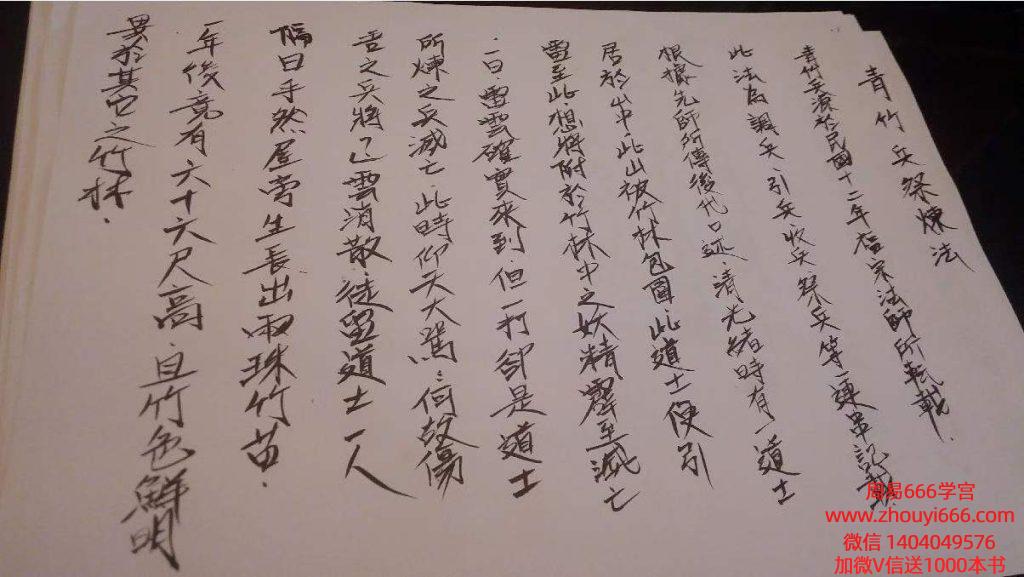 青竹兵祭煉法
青竹兵源於民國十二年植宗法師所軼載.
此法為調兵、引兵收兵祭兵等一連串記載
根據先師所傳後代口述清光緒時有一道士
居於山中此山被竹林包圍,此道士便引
雷至此,想將附於竹林中之妖精靈至滅亡
一日,雷雲確實來到但一打卻是道士
所煉之兵滅亡,此時仰天大罵,何故傷
吾之兵將已雲消散,徒留道士一人
隔日手然屋旁生長出兩珠竹苗.
一年後竟有六十六尺高,且竹色鮮明
異於其它之竹林.
周易666学宫
www.zhouyi666.com
微信 1404049576
加微V信送1000本书